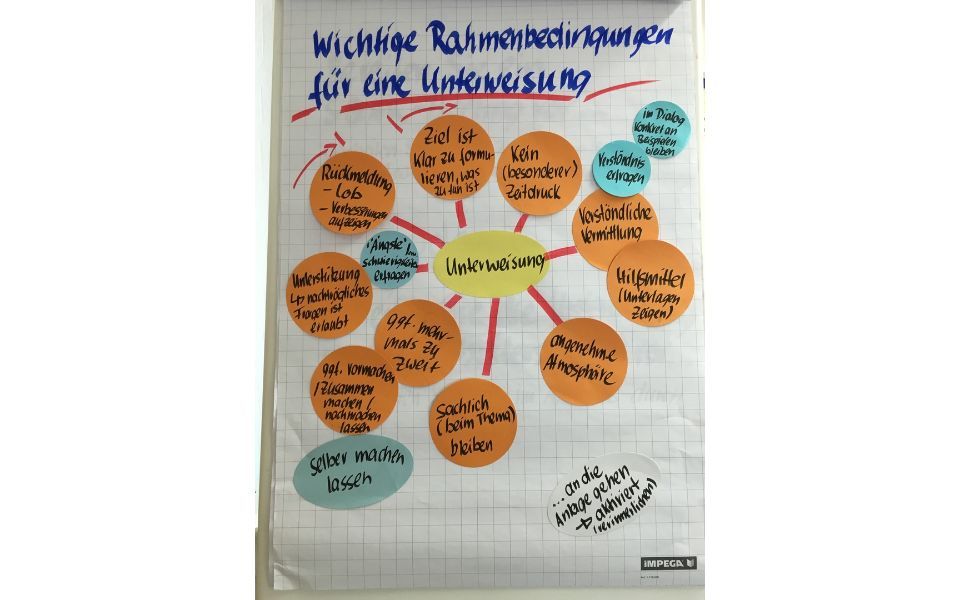 Wichtige Rahmenbedingungen
für eine Unterweisung
Rückmeldung
- Lob
- Verbesserungen
aufzeigen
Ziel ist
klar zu formu-
lieren, was
zu tun ist
Kein
(besonderer)
Zeitdruck
im Dialog
konkret an
Beispielen
bleiben
Verständnis
erfragen
Verständliche
Vermittlung
Hilfsmittel
(Unterlagen
zeigen)
Unterweisung
"Ängste"
schwierigkeiten
erfragen
Unterstützung
↳ nachträgliches
Fragen ist
erlaubt
ggf. mehr-
mals zu
zweit
angenehme
Atmosphäre
ggf. vormachen
/ zusammen
machen /
nachmachen
lassen
Sachlich
(beim Thema)
bleiben
Selber machen
lassen
... an die
Anlage gehen
→ aktiviert
(verinnerlichen)
IMPEGA